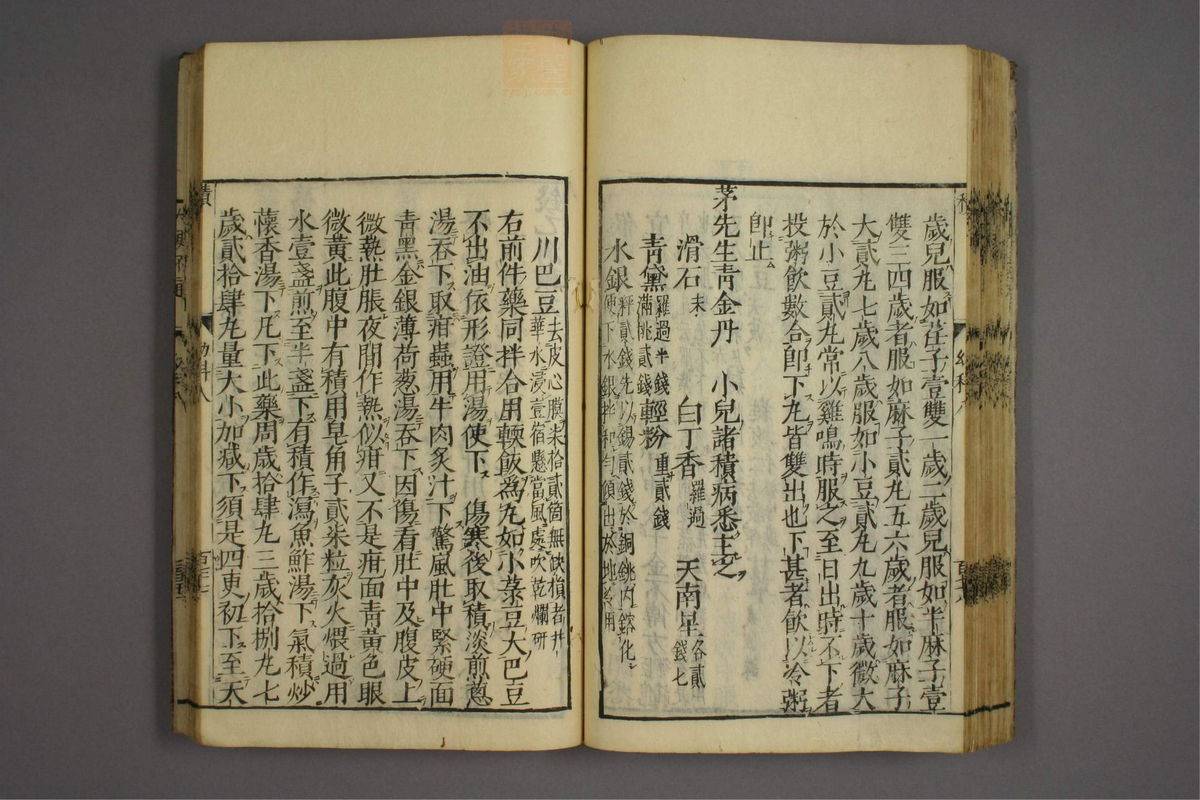 歲兒服如荏子壹雙一歲二歲兒服如半麻子壹
雙三四歲者服如麻子貳丸五六歲者服如麻子
大貳丸七歲八歲服如小豆貳丸九歲十歲微大
於小豆貳丸常以雞鳴時服之至日出時不下者
投粥飲數合即下丸皆雙出也下甚者飲以冷粥
即止
茅先生青金丹 小兒諸積病悉主之
滑石末 白丁香羅過 天南星各貳錢七
青黛羅過半錢滿挑貳錢 輕粉重貳錢
水銀秤貳錢先以錫貳錢於銅銚內鎔化便下水銀拌和勻傾出於地冷用
川巴豆去皮心膜柒拾貳箇無缺損者井華水浸壹宿懸當風處吹乾爛研
右前件藥同拌合用輭飯為丸如小菉豆大巴豆
不出油依形證用湯使下 傷寒後取積淡煎蔥
湯吞下取疳蟲用牛肉炙汁下驚風肚中緊硬面
青黑金銀薄荷蔥湯吞下因傷看肚中及腹皮上
微熱肚脹夜間作熱似疳又不是疳面青黃色眼
微黃此腹中有積用皂角子貳柒粒灰火煨過用
水壹盞煎至半盞下有積作瀉魚鮓湯下氣積炒
懷香湯下凡下此藥周歲拾肆丸三歲拾捌丸七
歲貳拾肆丸量大小加減下須是四更初下至天